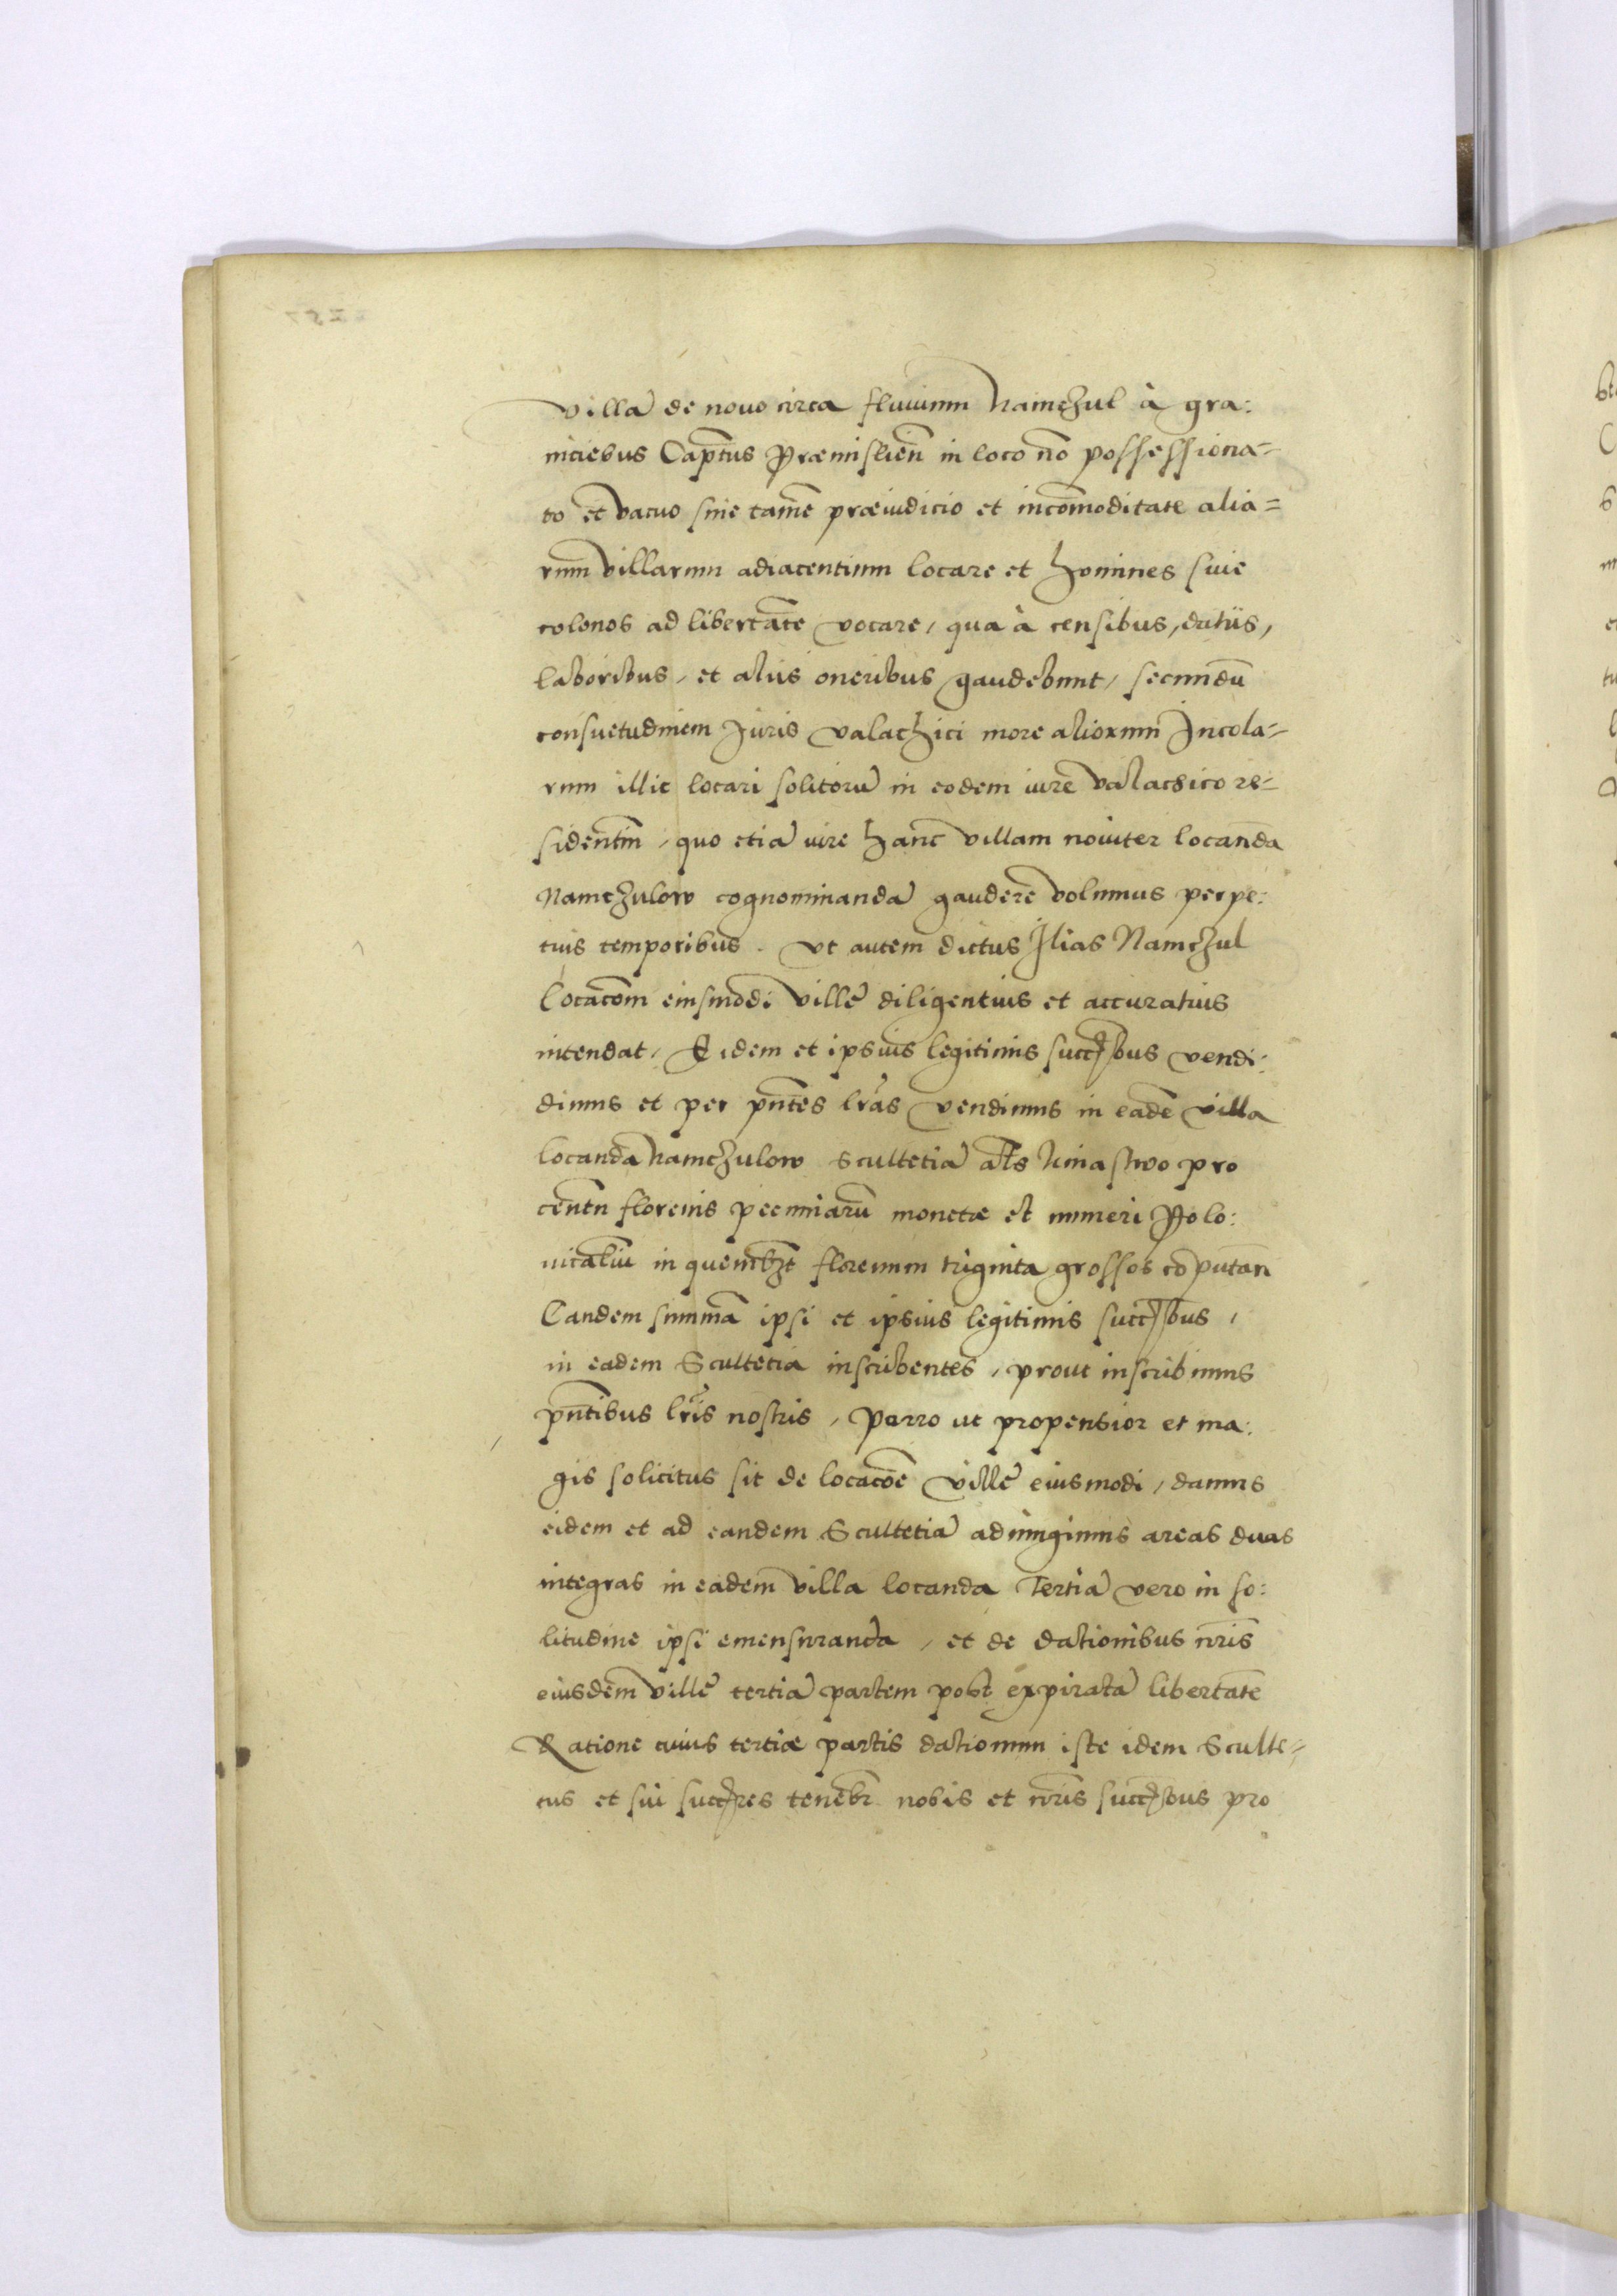 villā de nouo circa fluuium Namchzul à gra:
niciebus Capt̄us Præmislieñ in loco nō possessiona=
to et vacuo sine tamē præiudicio et incōmoditate alia=
rum villarum adiacentium locare et homines siue
colonos ad libertātē vocare, qua à censibus, datiis,
laboribus, et aliis oneribus gaudebunt, secundū
consuetudinem Juris valachici more aliorum Incola=
rum illic locari solitorū in eodem iure valachico re=
sidentīm, quo etiā iure hanc villam nouiter locandā
Namchzulow cognominandā gaudere volumus perpe:
tuis temporibus. Vt autem dictus Ilias Namchzul
Locācom eiusmodi villę diligentius et accuratius
intendat, Eidem et ipsius legitimis succ̄bus vendi:
dimus et per pn̄tes lrās vendimus in eadē villa
locanda Namchzulow Scultetiā al̄s Kniastwo pro
centū florenis pecuniarū monetæ et numeri Polo:
nicaliū in quemlibet florenum triginta grossos cōputan̄
Eandem summā ipsi et ipsius legitimis succ̄bus,
in eadem Scultetia inscribentes, prout inscribimus
pn̄tibus lrīs nostris, Porro ut propensior et ma:
gis solicitus sit de locacōe villę eiusmodi, damus
eidem et ad eandem Scultetiā adiungimus areas duas
integras in eadem villa locanda Tertiā vero in so:
litudine ipsi emensurandā, et de dationibus nr̄is
eiusdem villę tertiā partem post expiratā libertatē
Ratione cuius tertiæ partis dationum iste idem Sculte=
tus et sui succ̄res tenebr̄ nobis et nr̄is succ̄bus pro